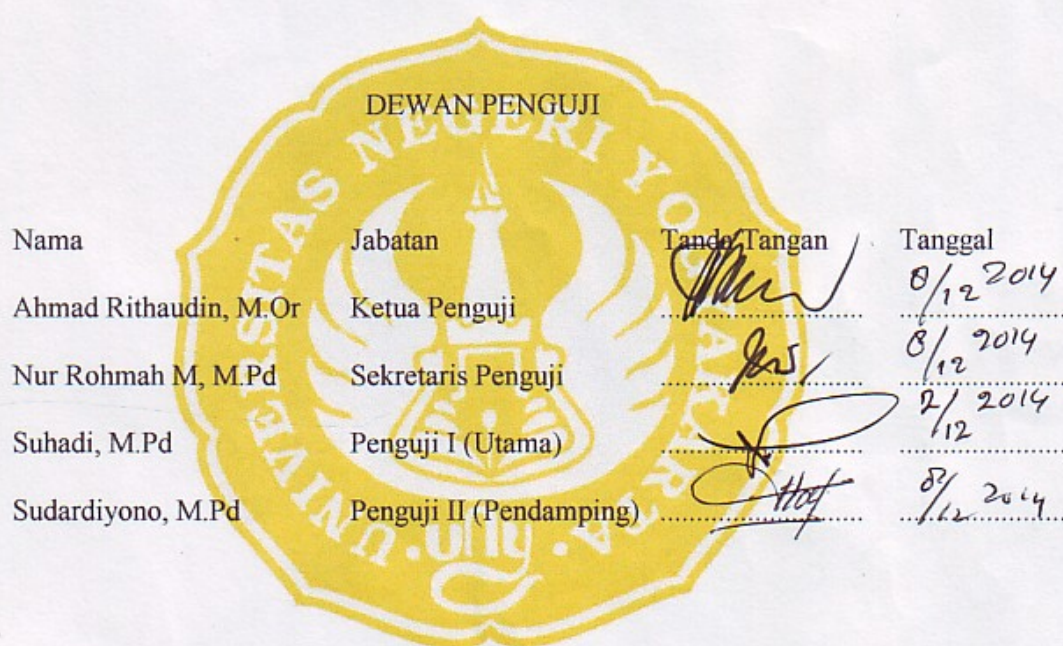 DEWAN PENGUJI
UNIVERSITAS NEGERI YOGYAKARTA
Nama Jabatan Tanda Tangan Tanggal
Ahmad Rithaudin, M.Or Ketua Penguji ........................ 8/12 2014
Nur Rohmah M, M.Pd Sekretaris Penguji ........................ 8/12 2014
Suhadi, M.Pd Penguji I (Utama) ........................ 2/12 2014
Sudardiyono, M.Pd Penguji II (Pendamping) ........................ 8/12 2014
UNY